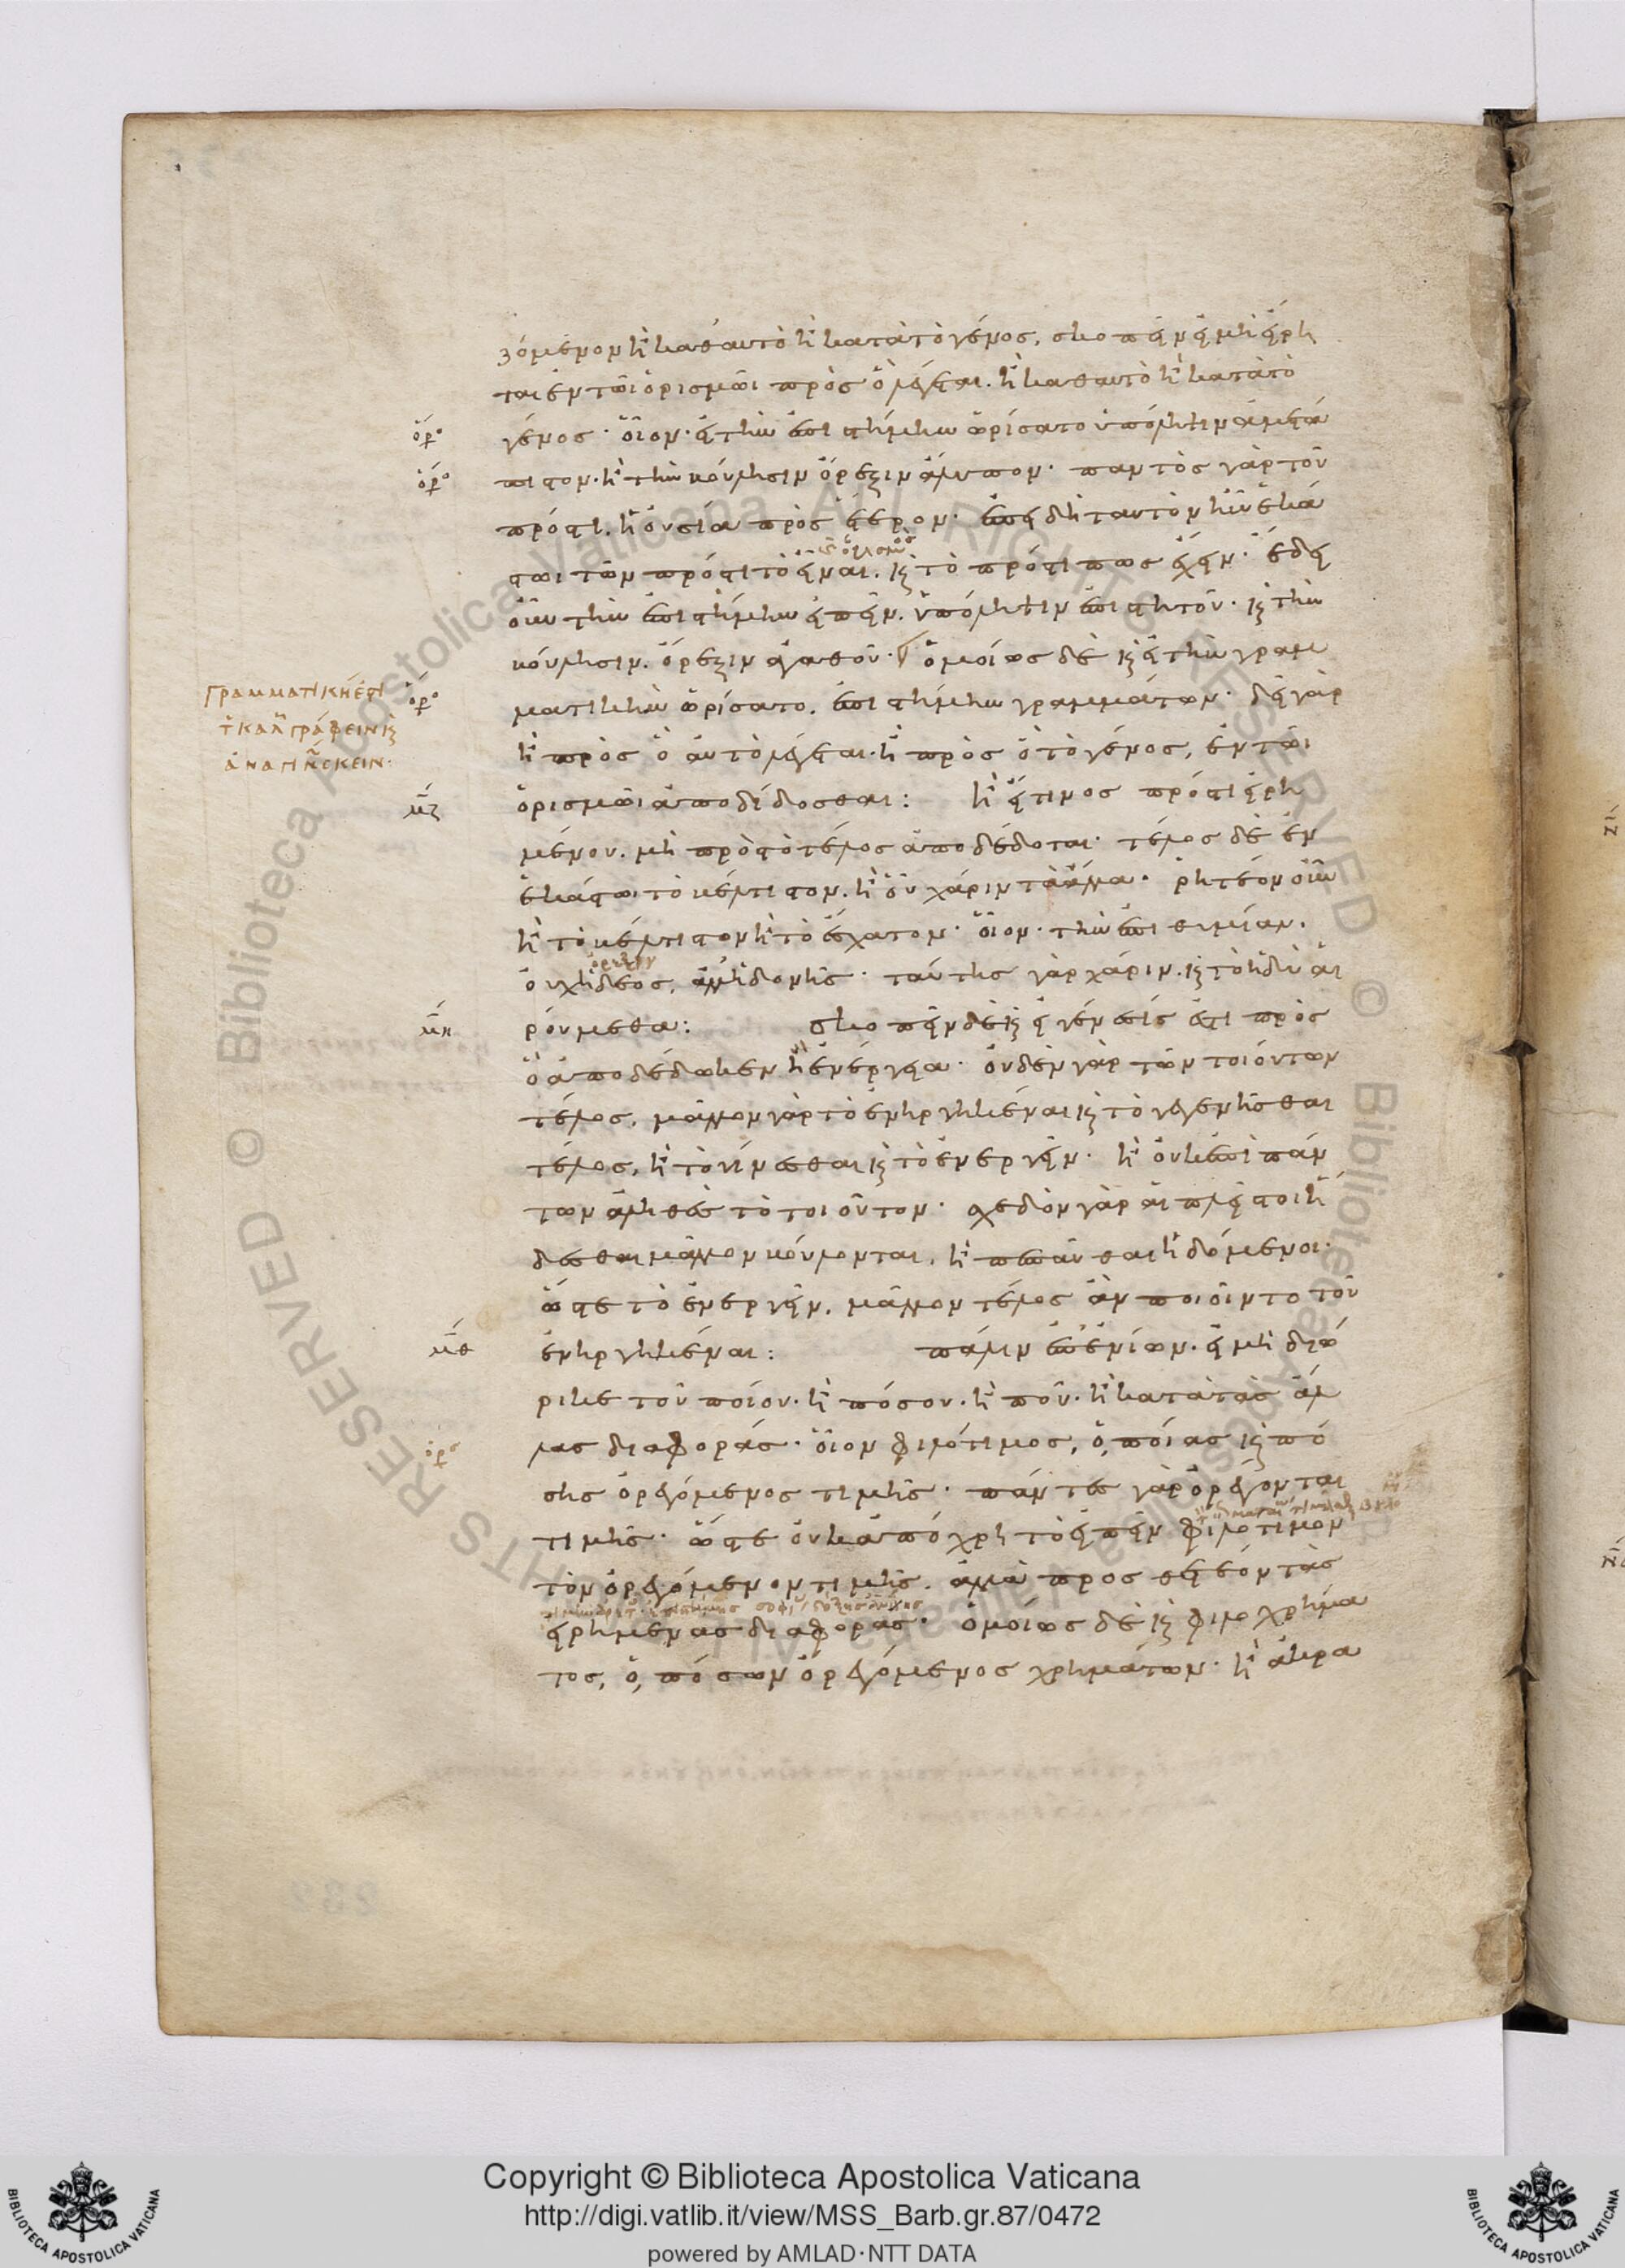 ζόμενον ἢ καθ' αὑτὸ ἢ κατὰ τὸ γένος, σκοπεῖν εἰ μὴ εἴρη
ται ἐν τῶι ὁρισμῶι πρὸς ὃ λέγεται. ἢ καθ' αὑτὸ ἢ κατὰ τὸ
ὅρο γένος· οἷον· εἰ τὴν ἐπιστήμην ὡρίσατο ὑπόληψιν ἀμετά
ὅρο πειστον. ἢ τὴν βούλησιν ὄρεξιν ἄλυπον· παντὸς γὰρ τοῦ
πρός τι. ἡ οὐσία πρὸς ἕτερον· ἐπεὶ δὴ ταυτὸν ἦν ἑκά
στωι τῶν πρός τι τὸ εἶναι. καὶ τὸ πρός τι πως ἔχειν· ἔδει
οὖν τὴν ἐπιστήμην εἰπεῖν. ὑπόληψιν ἐπιστητοῦ· καὶ τὴν
βούλησιν. ὄρεξιν ἀγαθοῦ· ὁμοίως δὲ καὶ εἰ τὴν γραμ
ὅρο ματικὴν ὡρίσατο. ἐπιστήμην γραμμάτων· δεῖ γὰρ
ἢ πρὸς ὃ αὐτὸ λέγεται. ἢ πρὸς ὃ τὸ γένος, ἐν τῶι
μζ ὁρισμῶι ἀποδίδοσθαι: ἢ εἴ τινος πρός τι εἰρη
μένου. μὴ πρὸς τὸ τέλος ἀποδέδοται· τέλος δὲ ἐν
ἑκάστωι τὸ βέλτιστον. ἢ οὗ χάριν τὰ ἄλλα· ῥητέον οὖν
ἢ τὸ βέλτιστον ἢ τὸ ἔσχατον· οἷον· τὴν ἐπιθυμίαν.
οὐχ ἡδέος, ἀλλ' ἡδονῆς· ταύτης γὰρ χάριν. καὶ τὸ ἡδὺ αἱ
μη ρούμεθα: σκοπεῖν δὲ καὶ εἰ γένεσίς ἐστι πρὸς
ὃ ἀποδέδωκεν ἢ ἐνέργεια· οὐδὲν γὰρ τῶν τοιούτων
τέλος, μᾶλλον γὰρ τὸ ἐνηργηκέναι καὶ τὸ γεγενῆσθαι
τέλος, ἢ τὸ γίνεσθαι καὶ τὸ ἐνεργεῖν· ἢ οὐκ ἐπὶ πάν
των ἀληθὲς τὸ τοιοῦτον· σχεδὸν γὰρ οἱ πλεῖστοι ἥ
δεσθαι μᾶλλον βούλονται, ἢ πεπαῦσθαι ἡδόμενοι·
ὥστε τὸ ἐνεργεῖν. μᾶλλον τέλος ἂν ποιοῖντο τοῦ
μθ ἐνηργηκέναι: πάλιν ἐπ' ἐνίων. εἰ μὴ διώ
ρικε τοῦ ποίου. ἢ πόσου. ἢ ποῦ. ἢ κατὰ τὰς ἄλ
ὅρο λας διαφοράς· οἷον φιλότιμος, ὁ ποίας καὶ πό
σης ὀρεγόμενος τιμῆς· πάντες γὰρ ὀρέγονται
τιμῆς· ὥστε οὐκ ἀπόχρη τὸ εἰπεῖν φιλότιμον
τὸν ὀρεγόμενον τιμῆς. ἀλλὰ προσθετέον τὰς
εἰρημένας διαφοράς· ὁμοίως δὲ καὶ φιλοχρήμα
τος, ὁ πόσων ὀρεγόμενος χρημάτων· ἢ ἀκρα
Copyright © Biblioteca Apostolica Vaticana
http://digi.vatlib.it/view/MSS_Barb.gr.87/0472
powered by AMLAD·NTT DATA
BIBLIOTECA APOSTOLICA VATICANA
BIBLIOTECA APOSTOLICA VATICANA